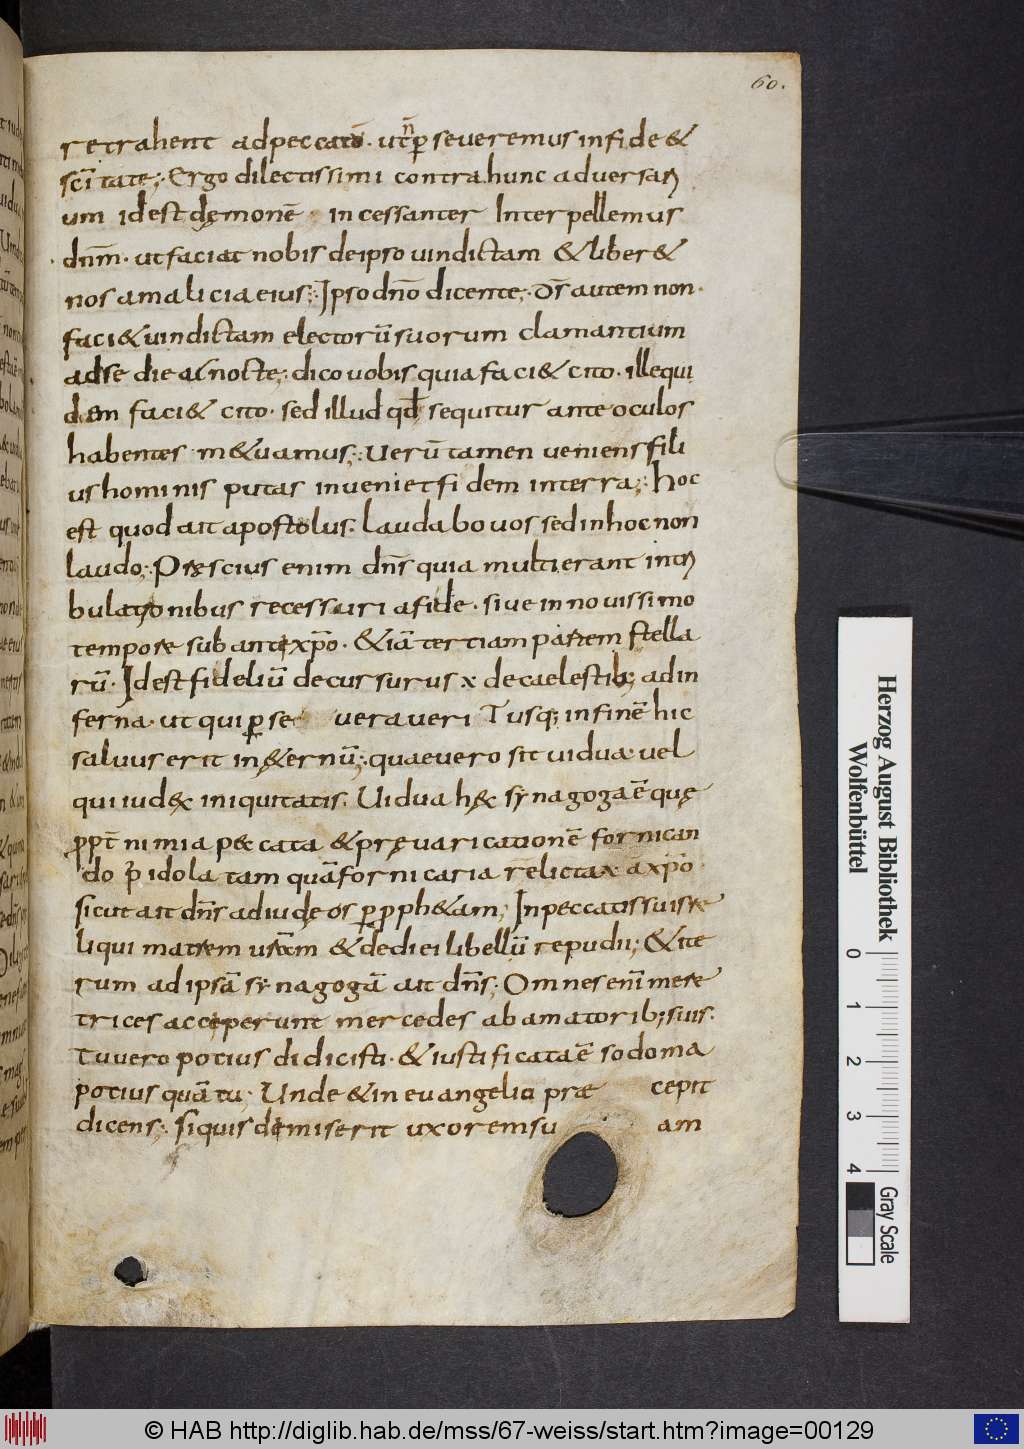 60.
retrahent ad peccatū. ut n̄ ꝑseveremus in fide &
sc̄itate; Ergo dilectissimi contra hunc adversari
um id est dęmonē incessanter Interpellemus
dn̄m. ut faciat nobis de ipso vindictam & liber&
nos a malicia eius; Ipso dn̄o dicente; Ds̄ autem non
faci& vindictam electorū suorum clamantium
ad se die ac nocte; dico vobis quia faci& cito. ille qui
dem faci& cito. sed illud qđ sequitur ante oculos
habentes m&uamus; Uerūtamen veniens fili
us hominis putas inveniet fidem in terra; hoc
est quod ait apostolus. laudabo vos sed in hoc non
laudo; Pręscius enim dn̄s quia multi erant in tri
bulationibus recessuri a fide. sive in novissimo
tempore sub antixp̄o. & iā tertiam partem stella
rū. Id est fideliū decursurus x de caelestib; ad in
ferna. ut qui ꝑse veraveriTusq; in finē hic
salvus erit in ęternū; quae vero sit vidua vel
qui iudęx iniquitatis. Uidua hęc synagoga ē quę
ꝓpt̄ nimia peccata & pręvaricationē fornican
do p̄ idola tamquā fornicaria relicta x a xp̄o
sicut ait dn̄s ad iudęos ꝑ ꝓph&am; In peccatis suis re
liqui matrem vr̄am & dedi ei libellū repudii; & ite
rum ad ipsā synagogā ait dn̄s; Omnes enī mere
trices acceperunt mercedes ab amatorib; suis.
Tu vero potius didicisti. & iustificata ē sodoma
potius quā tu; Unde & in evangelio præ cepit
dicens; si quis dimiserit uxorem su am
Herzog August Bibliothek
Wolfenbüttel
0 1 2 3 4
Gray Scale
© HAB http://diglib.hab.de/mss/67-weiss/start.htm?image=00129